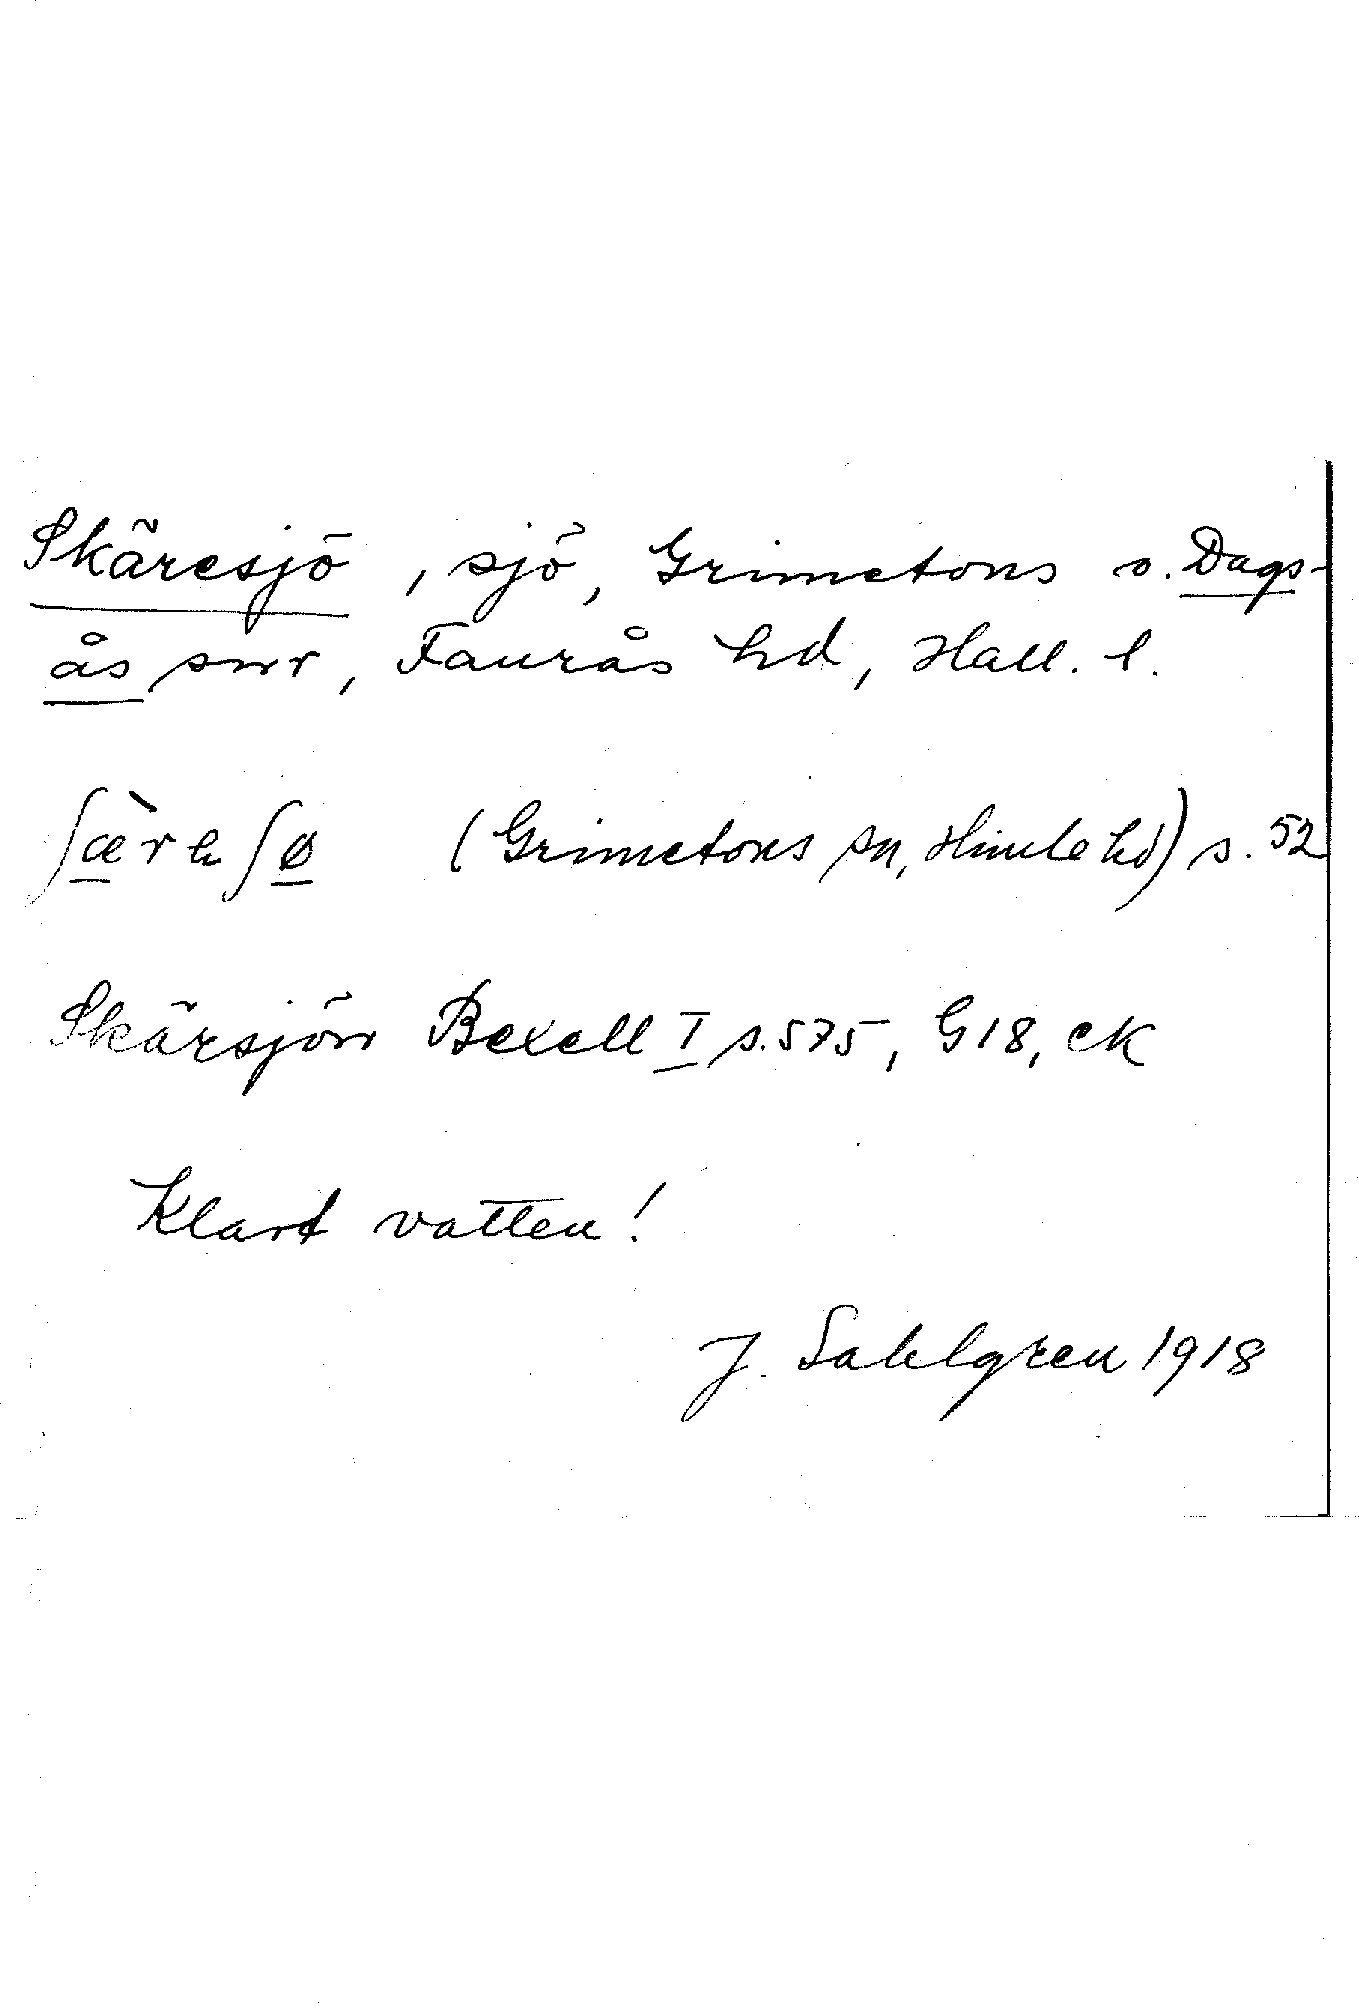 Skäresjö, sjö, Grimetons o. Dags-
ås snr, Faurås hd, Hall. l.
ʃæ̀rəʃø (Grimetons sn, Himle hd) s. 52
Skärsjön Bexell I s. 575, G18, eK
Klart vatten!
J. Sahlgren 1918